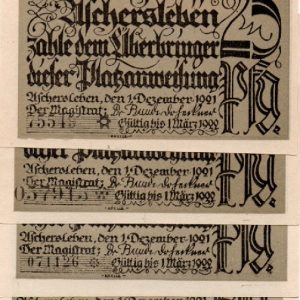 Aschersleben
zahle dem Überbringer
dieser Platzanweisung
Pfg.
Aschersleben, den 1. Dezember 1921
Der Magistrat:
Gültig bis 1. März 1922
dieser Platzanweisung
Pfg.
Aschersleben, den 1. Dezember 1921
Der Magistrat:
057915 Gültig bis 1. März 1922
Aschersleben, den 1. Dezember 1921
Der Magistrat:
071126 Gültig bis 1. März 1922
Aschersleben, den 1. Dezember 1921